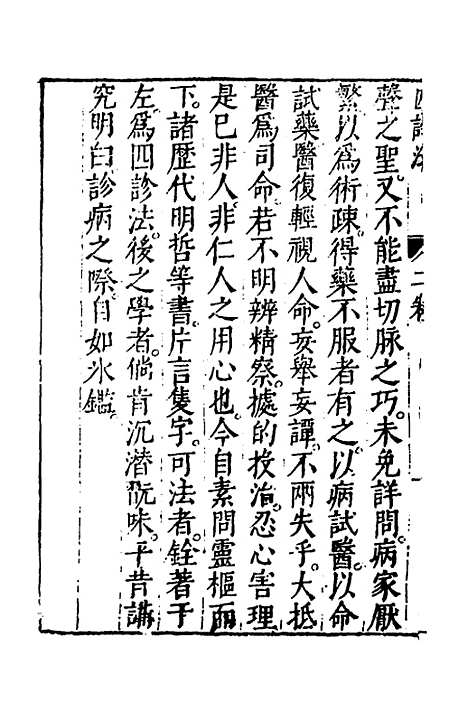 四診法 二卷
聲之聖。又不能盡切脉之巧。未免詳問。病家厭
繁。以爲術疎。得藥不服者有之。以病試醫。以命
試藥。醫復輕視人命。妄舉妄譚。不兩失乎。大抵
醫爲司命。若不明辨精察。據的投治。忍心害理
是已非人。非仁人之用心也。今自素問靈樞而
下。諸歷代明哲等書。片言隻字。可法者。銓著于
左。爲四診法。後之學者。倘肯沉潛翫味。平昔講
究明白。診病之際。自如氷鑑。